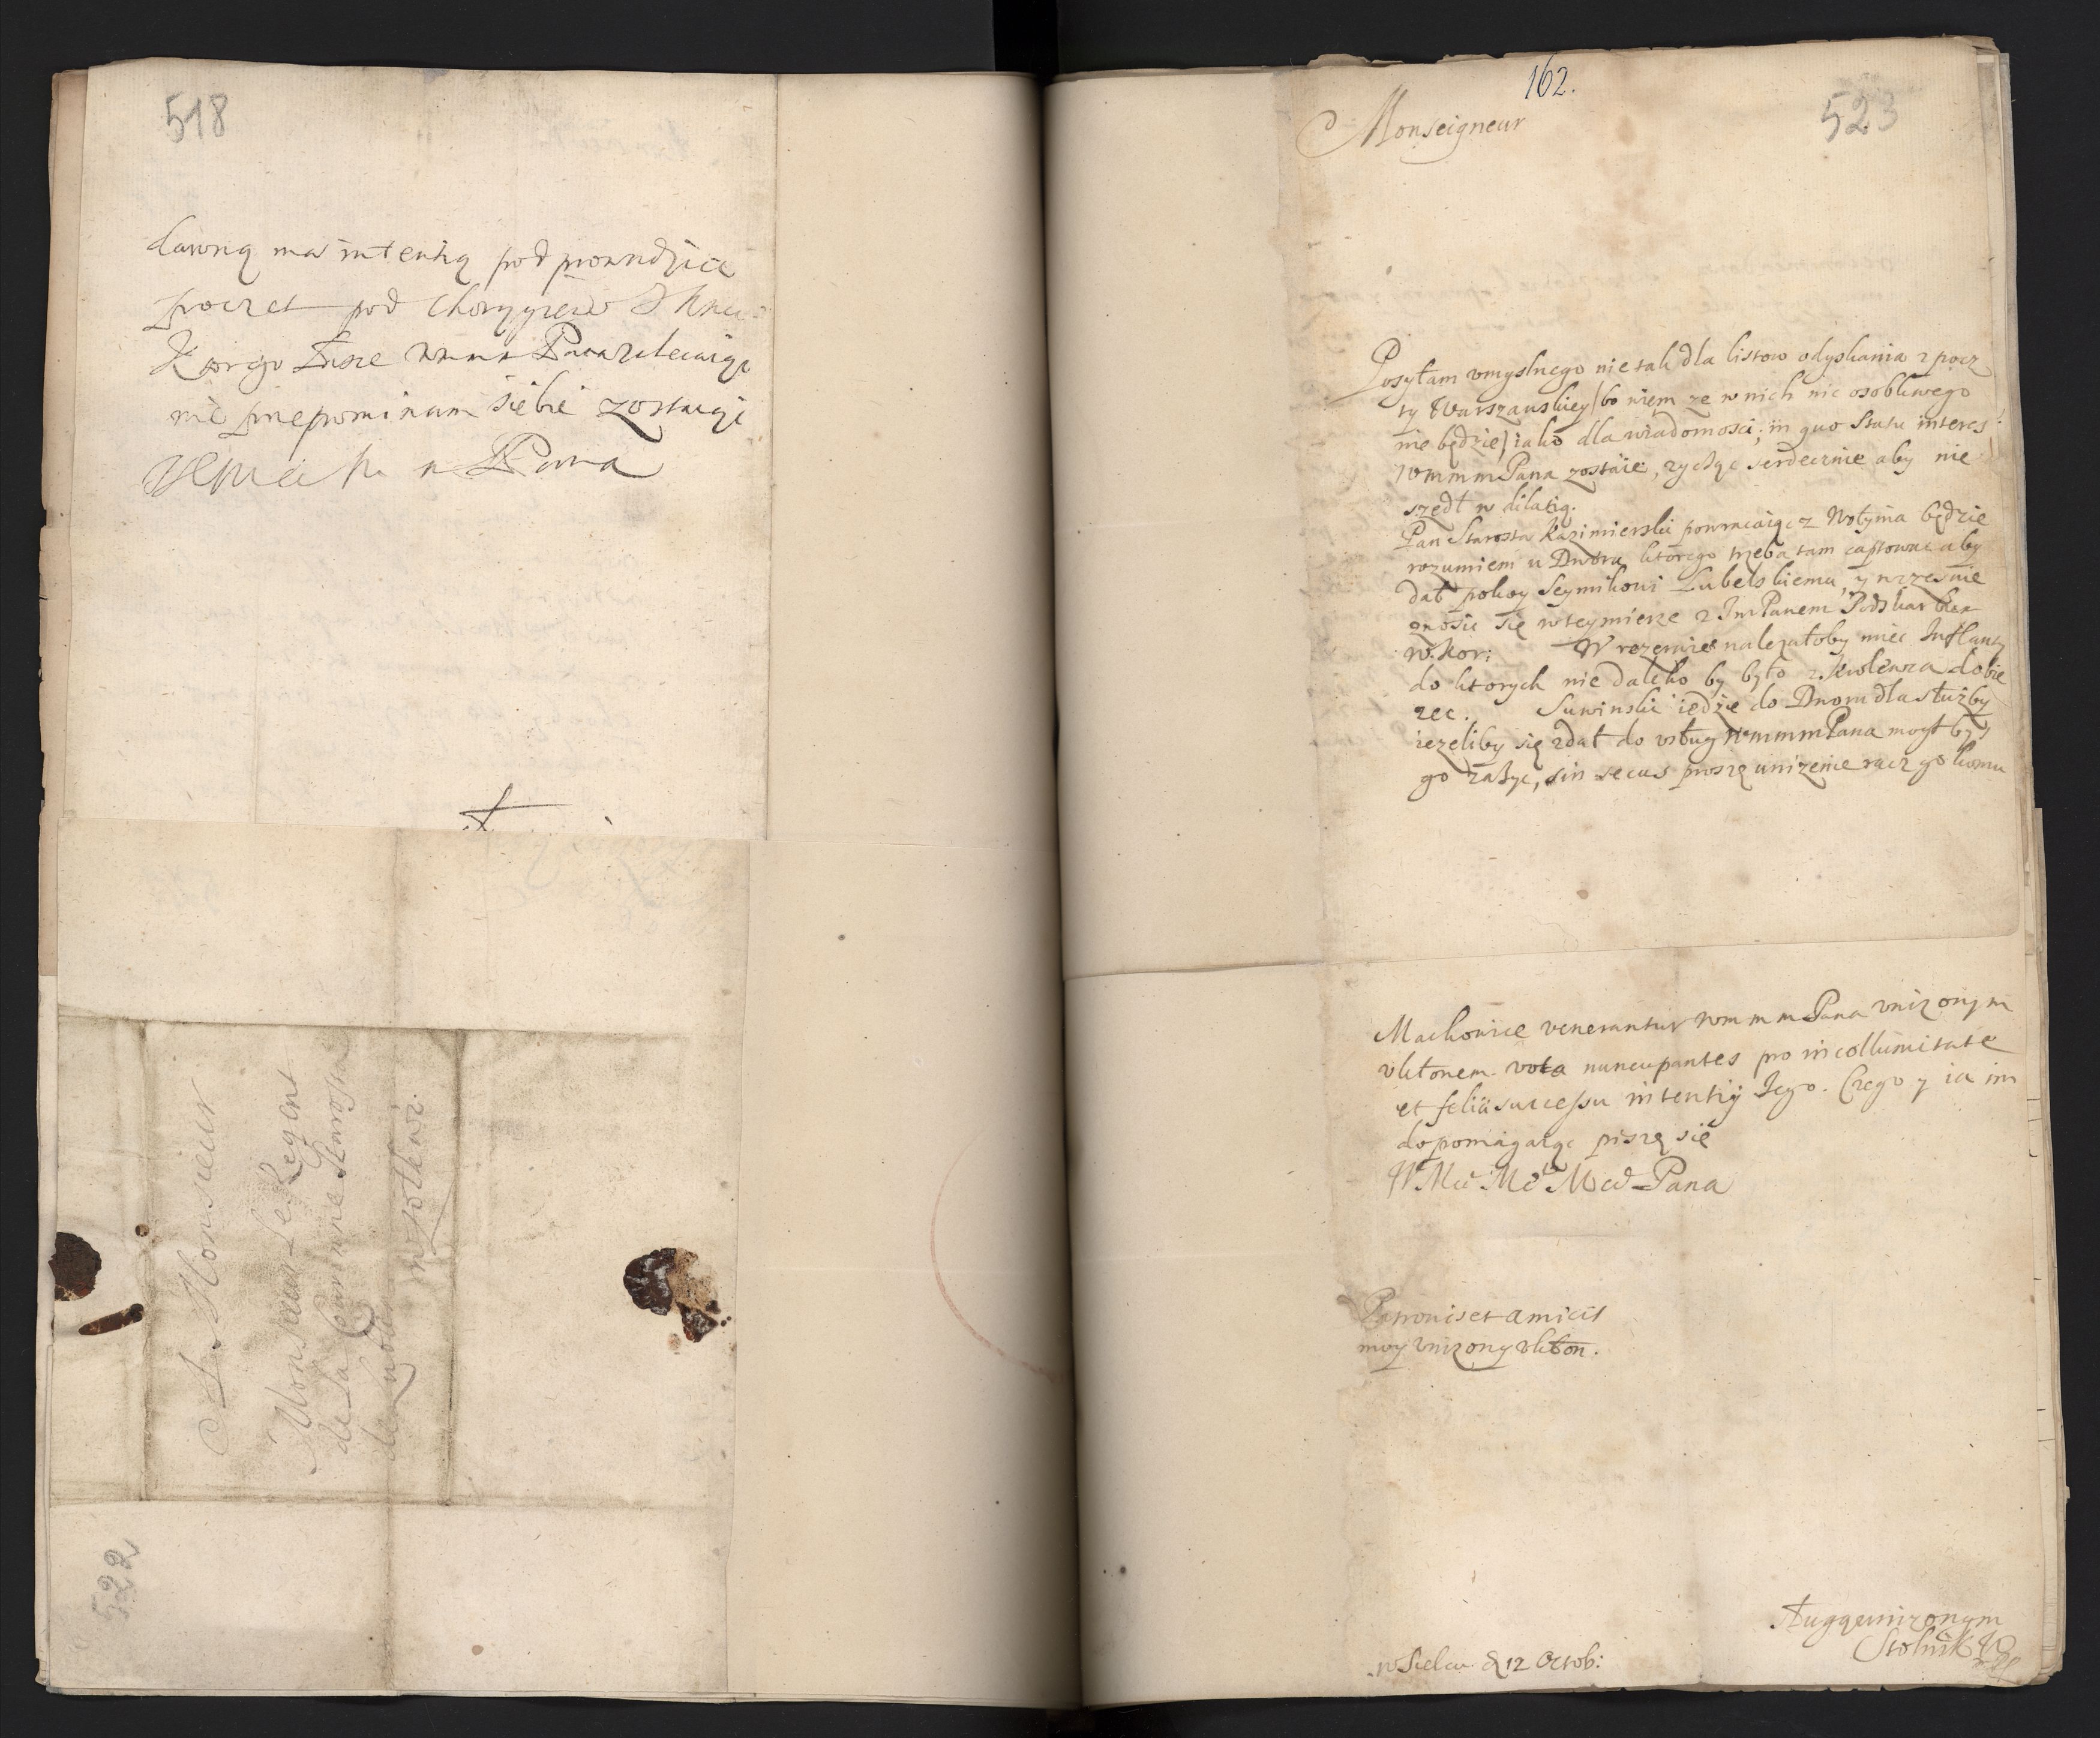 518
dawną ma intentią pod
poczet pod Chorągiew
nie przepominam siebie zostaię
Pana
A Monsieur
Monsieur Le Regent
de la Couronne Starosta
de Lublin
w Zołkwi
522
162.
523
Monseigneur
Posyłam vmyslnego nie tak dla listow odyskania z pocz
ty Warszauskiey/bo wiem ze w nich nic osobliwego
nie będzie/iako dla wiadomosci, in quo statu interes
wmmmPana zostaie, zycząc serdecznie aby nie
szedł w dilatią.
Pan Starosta Kazimierski powracaiąc z Wołynia będzie
rozumiem u Dworu ktorego trzeba tam captowac aby
dał pokoy Seymikowi Lubelskiemu, y wczesnie
znosic się w tey mierze z ImPanem Podskarbim
w.kor: W rezerwie nalezałoby miec Inflanty
do ktorych nie daleko by było z Krolewca dobie
zec. Suwinski iedzie do Dworu dla słuzby
iezeliby się zdał do vsług WmmmPana mogł by
go zazyc, sin secus proszę unizenie racz go komu
Maćkowice venerantur wmmmPana vnizonym
vkłonem vota nuncupantes pro incollumitate
et felici successu intentiy Jego. Czego y ia im
dopomagaiąc piszę się
W Mci Me° Mcd Pana
Patronis et amicis
moy vnizony vkłon.
Sługą unizonym
Stolnik
w Sielcu d 12 Octob: